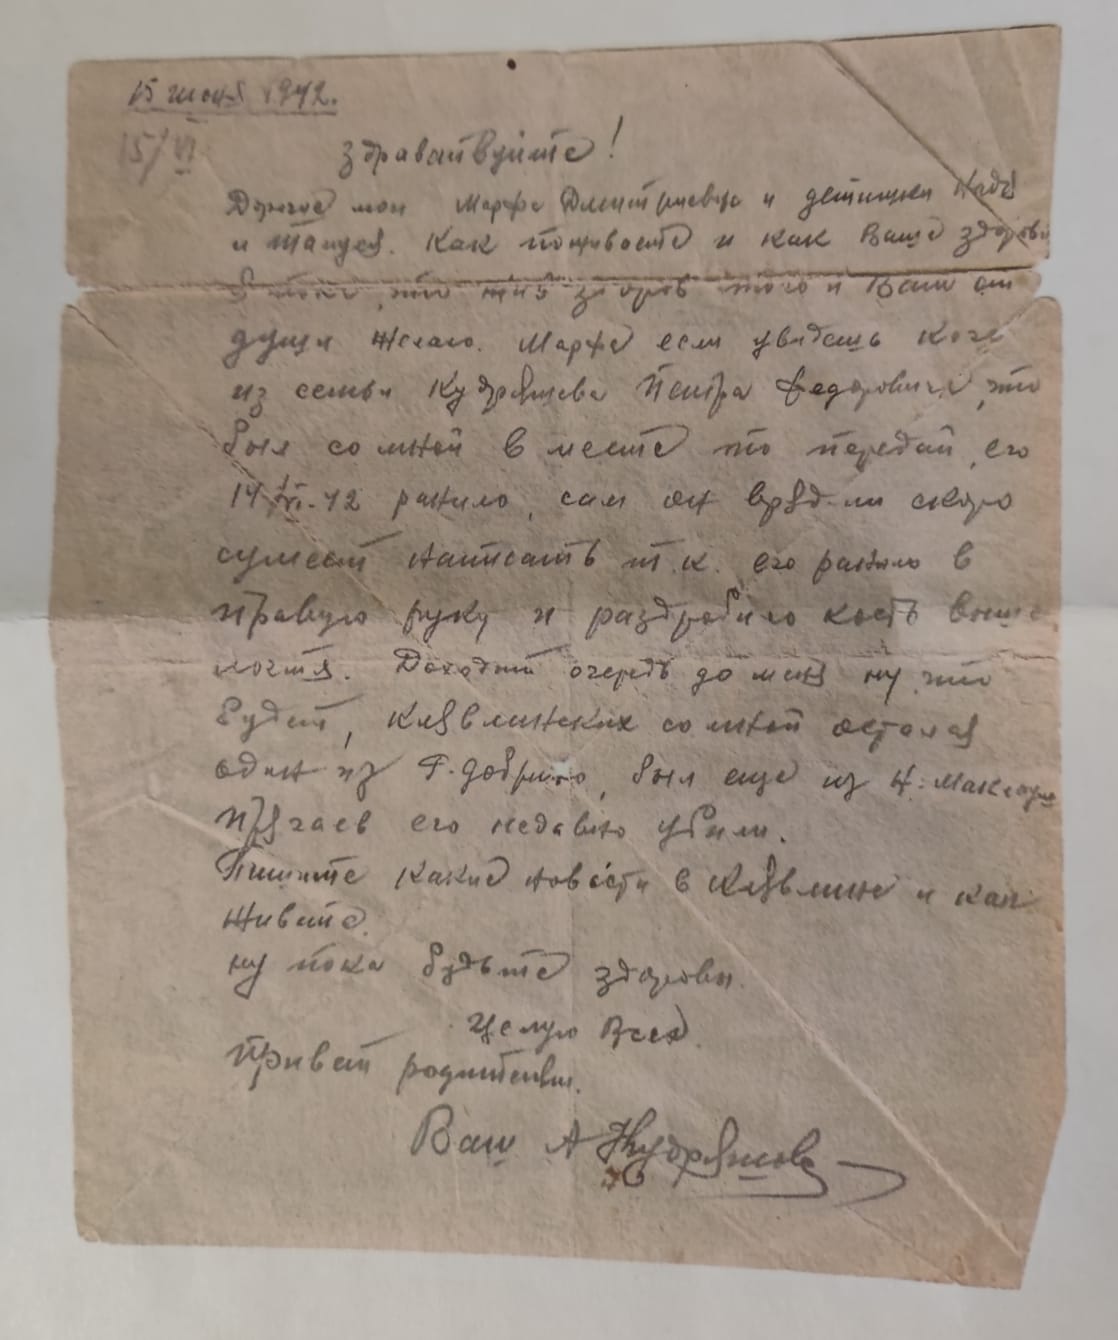 15 июня 1942.
15/VI
Здравствуйте!
Дорогие мои Марфа Дмитриевна и детишки Надя
и Тануся. Как поживаете и как Ваше здоровье
Я пока что жив здоров того и Вам от
души желаю. Марфа если увидешь кого
из семьи Кудряшева Петра Федоровича, что
был со мной в месте то передай, его
14/VI-42 ранило, сам он врядли скоро
сумеет написать т.к. его ранило в
правую руку и раздробило кость выше
локтя. Доходит очередь до меня ну что
будет, клявлинских со мной остался
один из Г. Добрино, был еще из Н. Маклауш
пугаев его недавно убили.
Пишите какие новости в Клявлине и как
живете.
ну пока будьте здоровы.
Целую Всех.
Привет родителям.
Ваш А Кудряшов